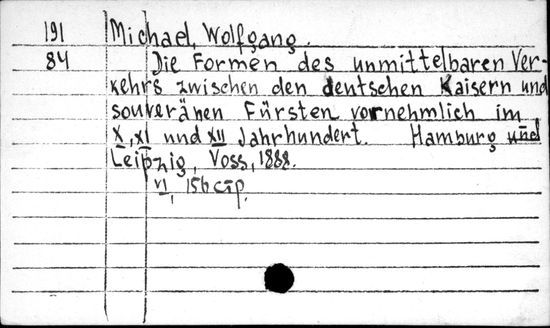 191 Michael, Wolfgang.
84 Die Formen des unmittelbaren Ver-
kehrs zwischen den deutschen Kaisern und
souveränen Fürsten vornehmlich im
X, XI und XII Jahrhundert. Hamburg und
Leipzig, Voss, 1888.
VI, 156 стр.